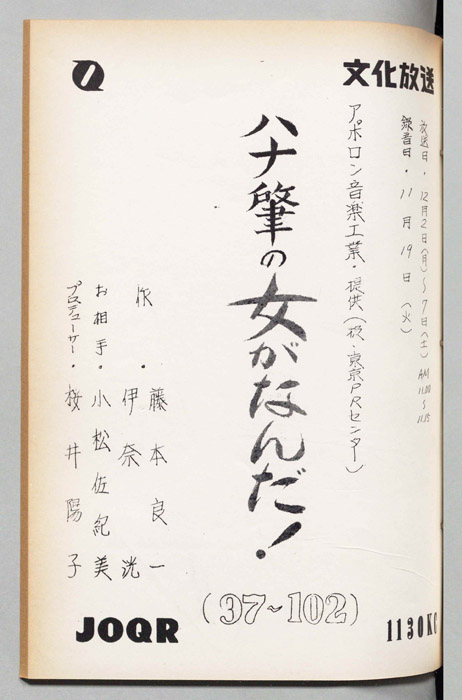 文化放送
放送日・12月2日(月)～7日(土) AM 11.00～11.15
録音日・11月19日(火)
アポロン音楽工業・提供(扱・東京PRセンター)
ハナ肇の女がなんだ!
(97～102)
作・藤本良一
伊奈洸
お相手・小松佐紀美
プロデューサー・桜井陽子
JOQR
1130KC